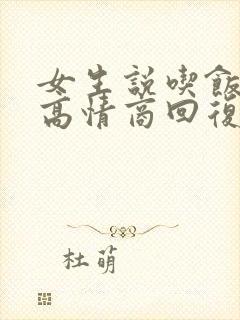 女生説喫飯
高情商回復
杜萌